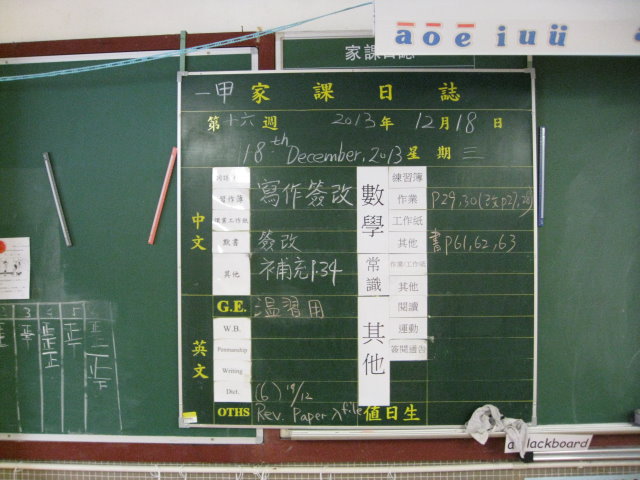 ā ō ē i u ü
家課日誌
一甲 家課日誌
第十六週 2013年12月18日
18th December, 2013 星期三
中文
習作簿 寫作簽改
默書 簽改
其他 補充P.34
數學
練習簿
作業 P29,30(3攵P27,28)
工作紙
其他 書P61,62,63
常識
作業/工作紙
其他
英文
G.E. 温習用
W.B.
Penmanship
Writing
Dict. (6) 19/12
OTHS Rev. Paper入file
其他
閱讀
運動
簽閱通告
值日生
2 3 4 5
a blackboard